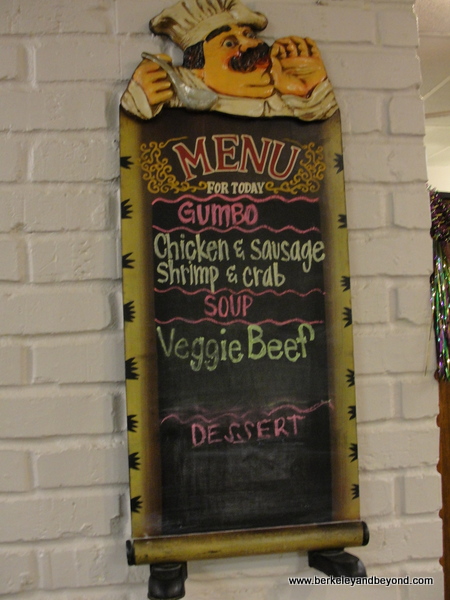 MENU
FOR TODAY
GUMBO
Chicken & Sausage
Shrimp & crab
SOUP
Veggie Beef
DESSERT
www.berkeleyandbeyond.com